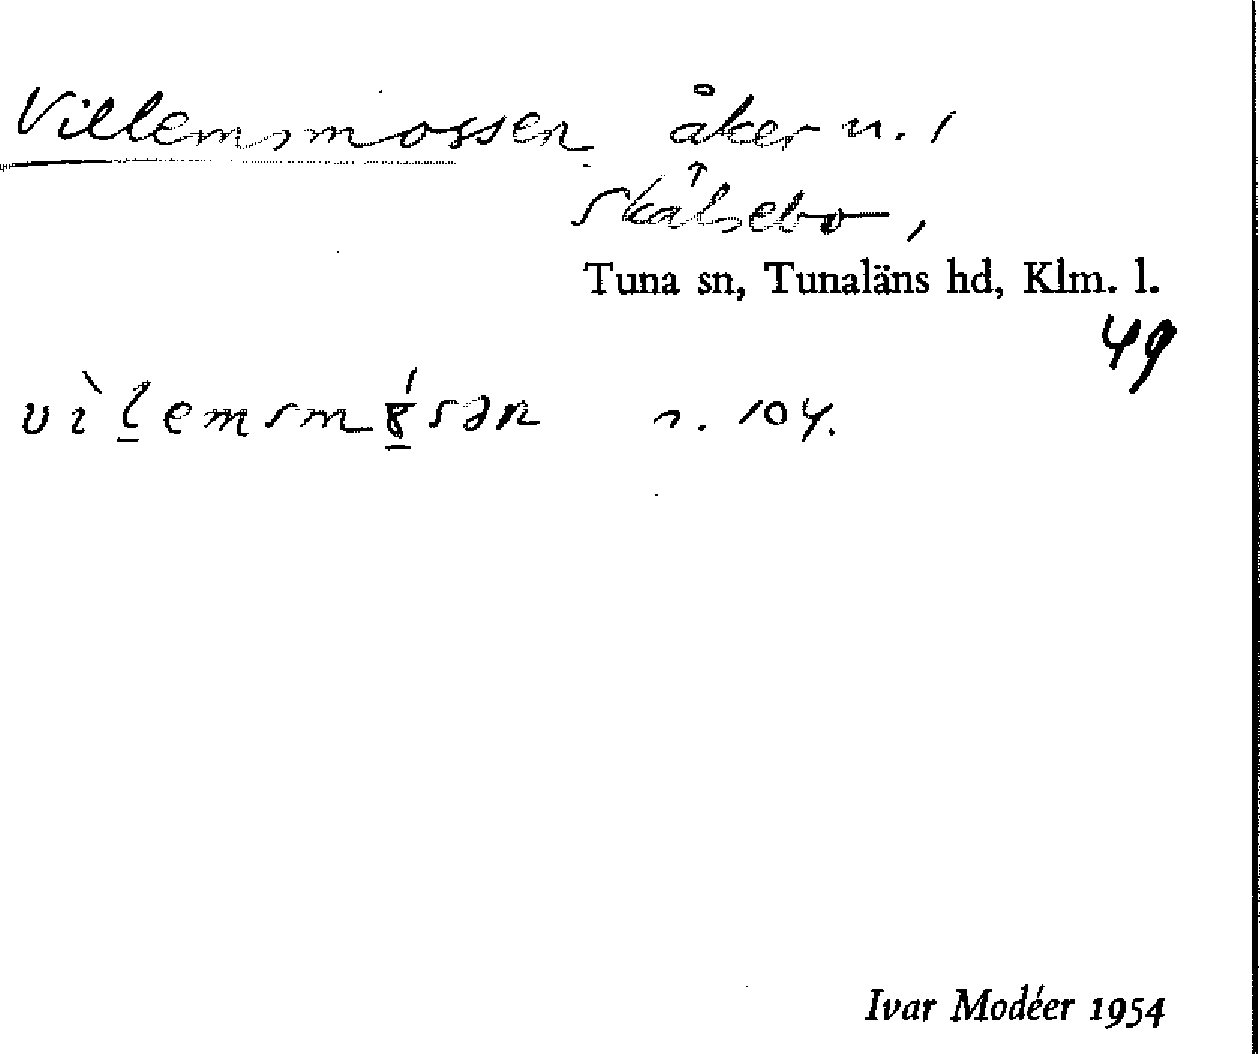 Villemsmossen åker u. 1
Skålsebo,
Tuna sn, Tunaläns hd, Klm. l.
49
vìlemsm sən s. 104.
Ivar Modéer 1954